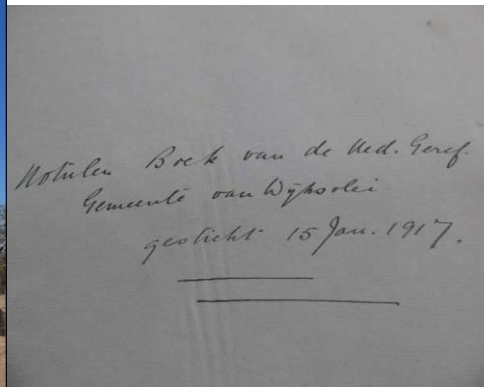 Notulen Boek van de Ned. Geref.
Gemeente van Wijksvlei
gesticht 15 Jan. 1917.